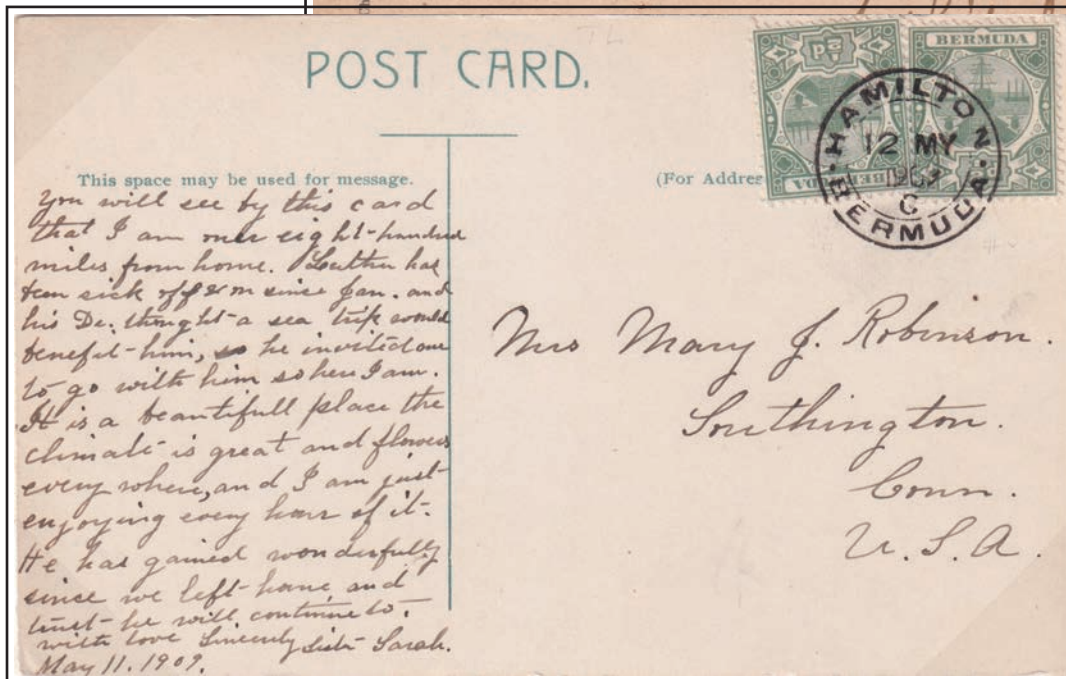 POST CARD.
BERMUDA
BERMUDA
HAMILTON
12 MY
C
BERMUDA
This space may be used for message.
(For Addres
You will see by this card
that I am over eight-hundred
miles from home. Luther has
been sick off & on since Jan. and
his Dr. thought a sea trip would
benefit him, so he invited me
to go with him so here I am.
It is a beautifull place the
climate is great and flowers
every where, and I am just
enjoying every hour of it.
He has gained wonderfully
since we left home and
trust he will continue to.
with love Sincerely Sister Sarah.
May 11. 1909.
Mrs Mary J. Robinson.
Southington.
Conn.
U.S.A.